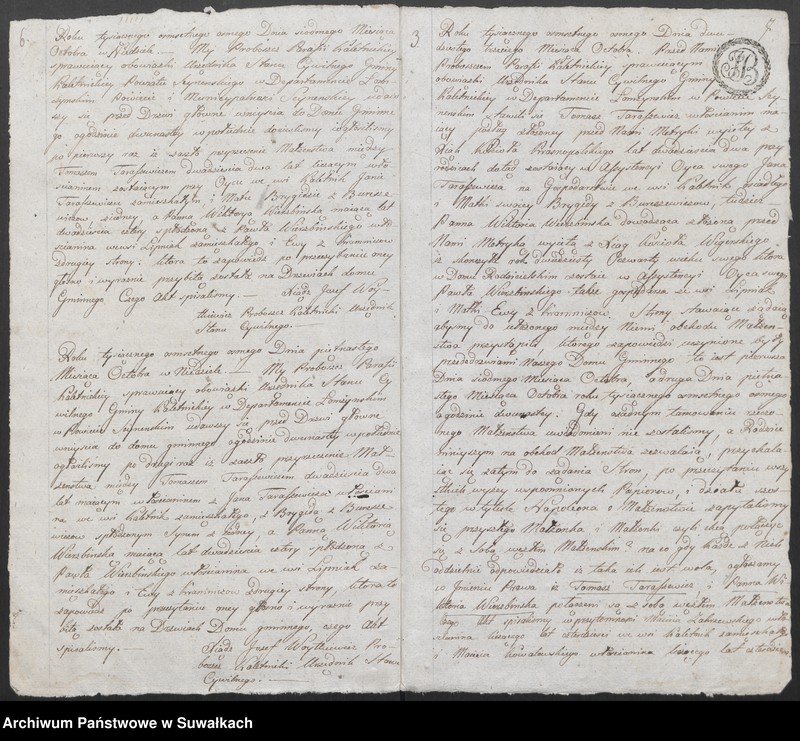 6.
Roku tysiącznego osmsetnego osmego Dnia siodmego Miesiąca
Octobra w Niedziele. — My Proboszcz Parafii Kaletnickiey
sprawuiący obowiązki Urzędnika Stanu Cywilnego Gminy
Kaletnickiey Powiatu Seynenskiego w Departamencie Łom-
żynskim Powiecie i Municypalnosci Seynenskiey udawa-
szy się przed Drzwi głowne wniyscia do Domu Gminne-
go o godzinie dwunastey w południe donieslismy i ogłosilismy
po pierwszy raz iż zaszło przyrzeczenie Małżenstwa między
Tomaszem Taraszewiczem dwadziescia dwa lat liczącym wło-
scianinem zostaiącym przy Oycu we wsi Kaletnik Janie
Taraszewiczu zamieszkałym, i Matce Brygidzie z Burzew-
wiczow, z iedney, a Panna Wiktorya Wierzbinska maiąca lat
dwadziescia cztery spłodzona z Pawła Wierzbinskiego wło-
scianina we wsi Lipniak zamieszkałego i Ewy z
z drugiey strony: ktora to zapowiedz po przeczytaniu oney
głosno i wyraznie przybita została na Drzwiach domu
Gminnego Czego Akt spisalismy. — Xiądz Jozef Woy-
tkiewicz Proboszcz Kaletnicki Urzędnik
Stanu Cywilnego. —
Roku tysiącznego osmsetnego osmego Dnia piętnastego
Miesiąca Octobra w Niedziele. — My Proboszcz Parafii
Kaletnickiey sprawuiący obowiązki Urzędnika Stanu Cy-
wilnego Gminy Kaletnickiey w Departamencie Łomżynskim
w Powiecie Seynenskim udawszy się przed Drzwi głowne
wniyscia do domu gminnego o godzinie dwunastey w południe
ogłosilismy po drugi raz iż zaszło przyrzeczenie Mał-
żenstwa między Tomaszem Taraszewiczem dwadziescia dwa
lat maiącym włoscianinem z Jana Taraszewicza włosciani-
na we wsi Kaletnik zamieszkałego, z Brygidy z Burzew-
wiczow spłodzonym Synem z iedney, a Panna Wiktorią
Wierzbinska maiąca lat dwadziescia cztery spłodzona z
Pawła Wierzbinskiego włoscianina we wsi Lipniak za-
mieszkałego i Ewy z z drugiey strony, ktora to
zapowiedz po przeczytaniu oney głosno i wyraznie przy-
bita została na Drzwiach Domu gminnego, czego Akt
spisalismy. Xiądz Jozef Woytkiewicz Pro-
boszcz Kaletnicki Urzędnik Stanu
Cywilnego. —
3.
7.
Roku tysiącznego osmsetnego osmego Dnia dwu-
dziestego trzeciego Miesiąca Octobra. Przed Nami
Proboszczem Parafii Kaletnickiey sprawuiącym
obowiązki Urzędnika Stanu Cywilnego Gminy
Kaletnickiey w Departamencie Łomżynskim w Powiecie Sey-
nenskim stawili się Tomasz Taraszewicz włoscianin ma-
iący podług złożoney przed Nami Metryki wyiętey z
Xiąg Koscioła Krasnopolskiego lat dwadziescia dwa przy
rodzicach dotąd zostaiący w Assystencyi Oyca swego Jana
Taraszewicza na Gospodarstwie we wsi Kaletnik osiadłego
i Matki swoiey Brygidy z Burzewiczow, tudziez
Panna Wiktoria Wierzbinska dowodząca złożoną przed
Nami Metryką wyiętą z Xiąg Koscioła Wigierskiego
iż skonczyła rok dwudziesty Czwarty wieku swego ktora
w Domu Rodzicielskim zostaie w Assystencyi Oyca swego
Pawła Wierzbinskiego także gospodarza ze wsi Lipniak
i Matki Ewy z . Strony stawaiące żądaią
abysmy do ułożonego między Niemi obchodu Małżen-
stwa przystąpili ktorego zapowiedzi uczynione były
przededrzwiami Naszego Domu Gminnego to iest pierwsza
Dnia siodmego Miesiąca Octobra, a druga Dnia piętna-
stego Miesiąca Octobra roku tysiącznego osmsetnego osmego
o godzinie dwunastey. Gdy o żadnym tamowaniu rzeczo-
nego Małżenstwa uwiadomieni nie zostalismy, a Rodzice
ninieyszym na obchod Małżenstwa zezwalaią, przychyla-
iąc się zatym do żądania Stron, po przeczytaniu wszy-
stkich wyżey wspomnionych Papierow, i działu szos-
tego w tytule Napoleona o Małżenstwie zapytalismy
się przyszłego Małżonka i Małżonki czyli chcą połączyć
się z sobą węzłem Małżenskim? na co gdy każde z Nich
oddzielnie odpowiedziało iż taka ich iest wola, ogłaszamy
w Imieniu Prawa iż Tomasz Taraszewicz i Panna Wi-
ktoria Wierzbinska połączeni są z sobą węzłem Małżenstwa
Czego Akt spisalismy w przytomnosci Zakrzewskiego wło-
scianina liczącego lat czterdziesci we wsi Kaletnik zamieszkałego
i Macieia Kowalewskiego włoscianina liczącego lat
Archiwum Państwowe w Suwałkach